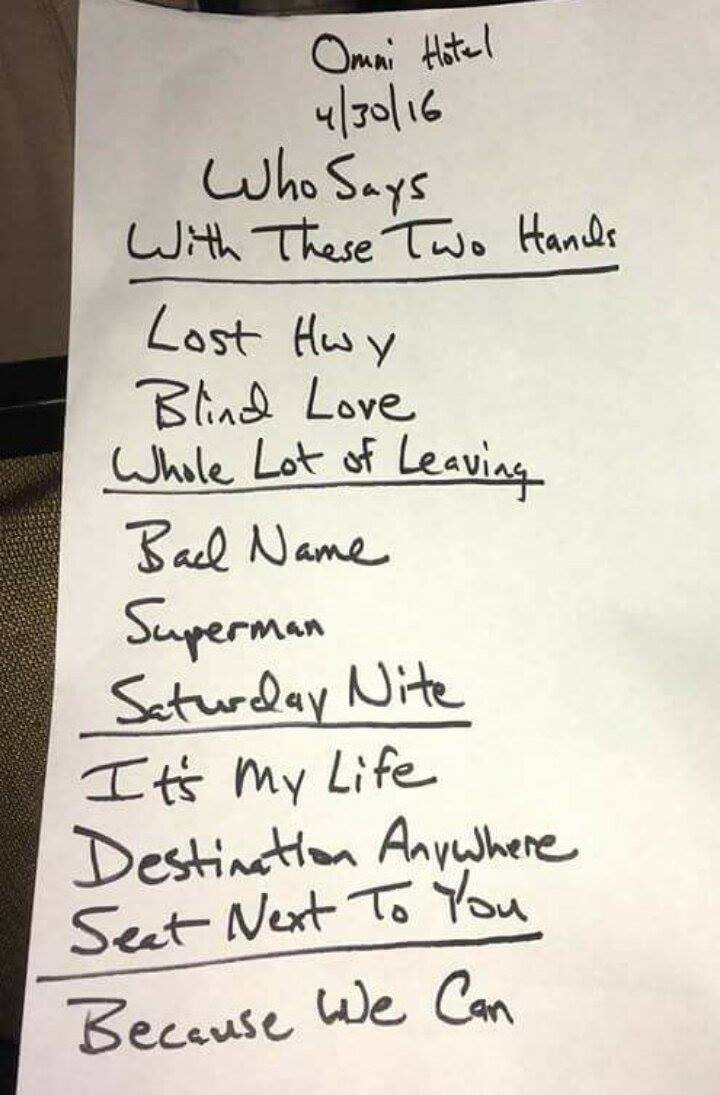 Omni Hotel
4/30/16
Who Says
With These Two Hands
Lost Hwy
Blind Love
Whole Lot of Leaving
Bad Name
Superman
Saturday Nite
It's My Life
Destination Anywhere
Seat Next To You
Because We Can